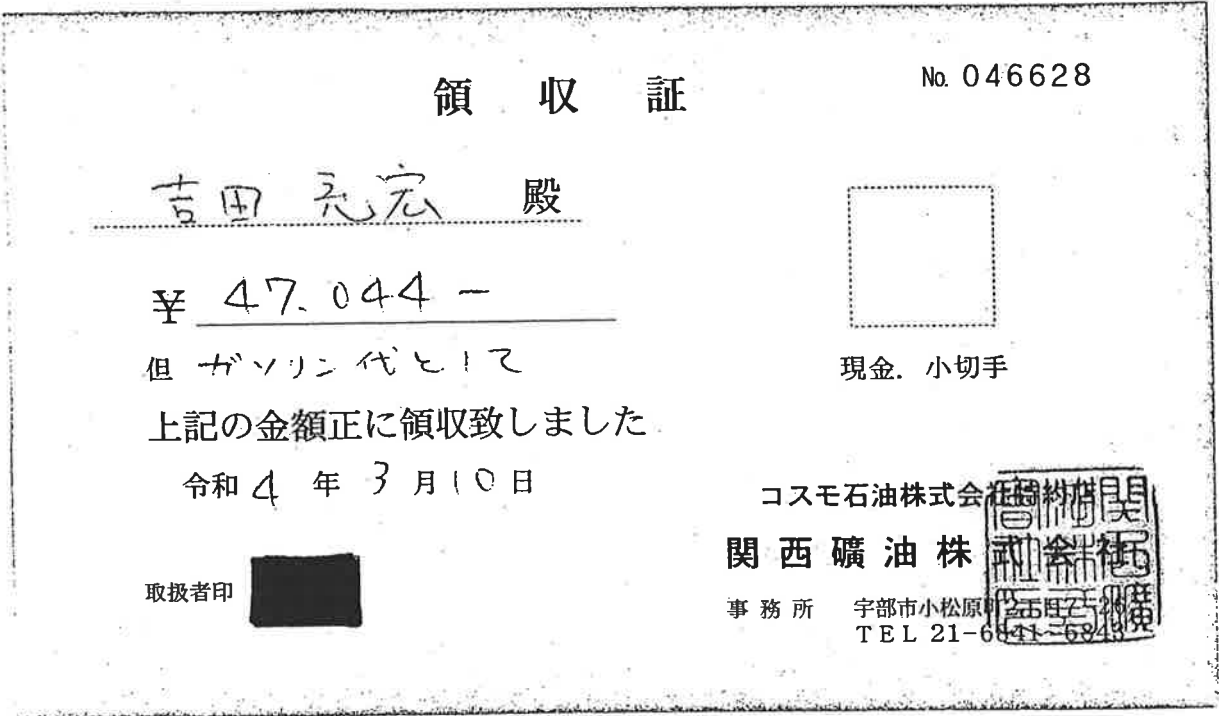 領収証
No. 046628
吉田 亮宏 殿
¥ 47.044-
但 ガソリン代として
上記の金額正に領収致しました
現金. 小切手
令和 4 年 3 月 10 日
取扱者印
コスモ石油株式会社特約店
関西礦油株式会社
事務所 宇部市小松原町2丁目7-26
TEL 21-6841~6843